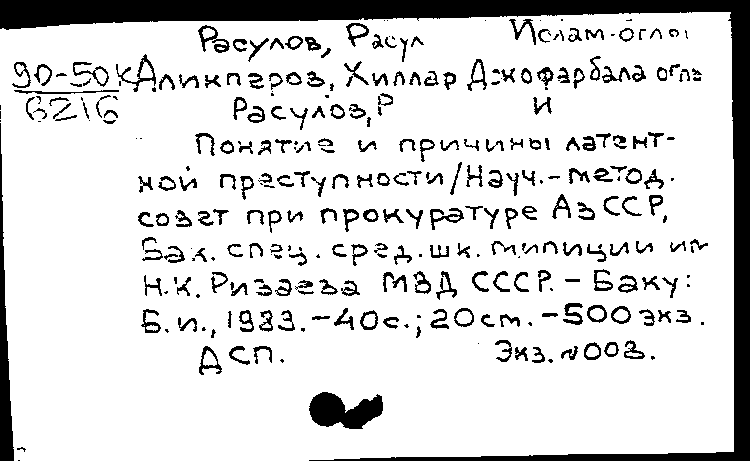 Расулов, Расул Ислам-оглы
90-50К Аликперов, Хиллар Джофарбала оглы
6216 Расулов, Р и
Понятие и причины латент-
ной преступности/Науч.-метод.
совет при прокуратуре АзССР,
Бак. спец. сред. шк. милиции им
Н.К. Ризаева МВД СССР. - Баку:
Б.и., 1989. - 40с.; 20см. - 500 экз.
ДСП. Экз. N003.